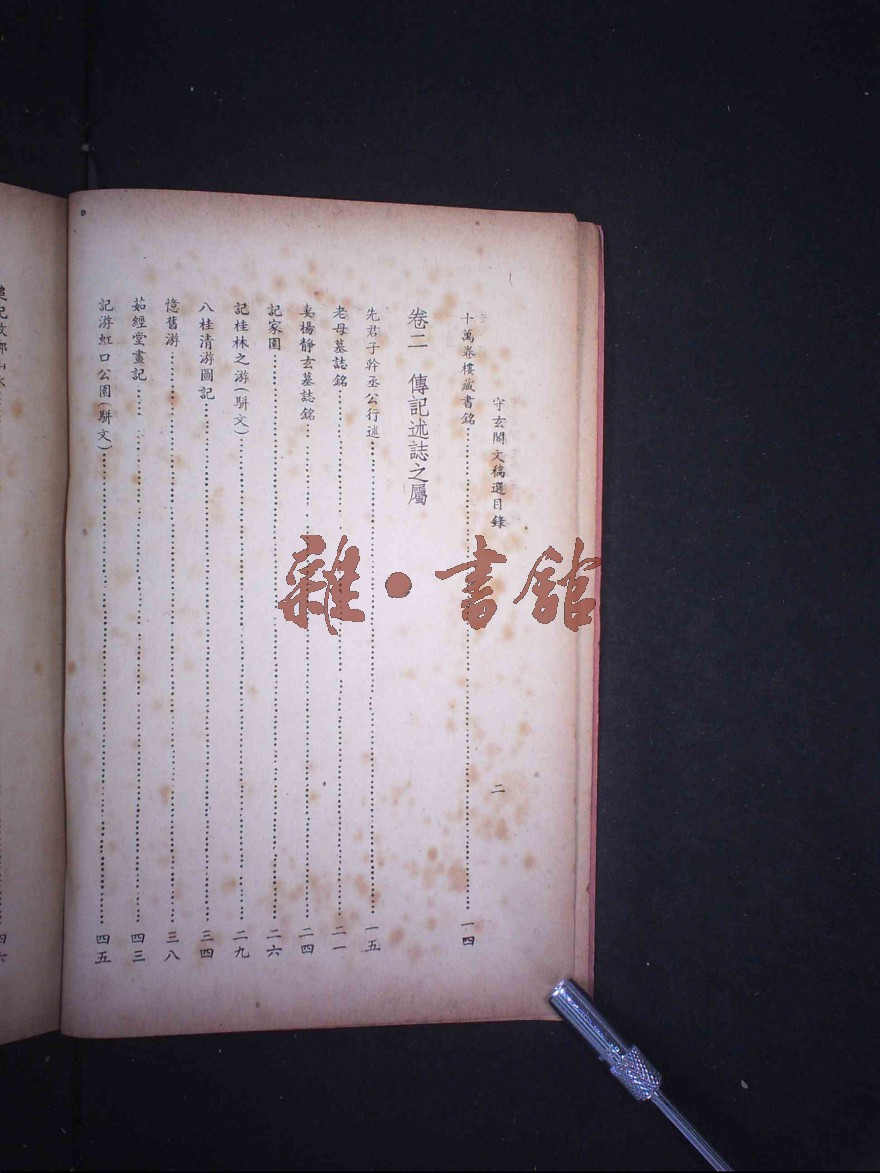 守玄閣文稿選目錄
二
十萬卷樓藏書銘……一四
卷二　傳記述誌之屬
先君子幹丞公行述……一五
老母墓誌銘……二一
妻楊靜玄墓誌銘……二四
記家園……二六
記桂林之游(駢文)……二九
八桂清游圖記……三四
憶舊游……三八
茹經堂畫記……四三
記游虹口公園(駢文)……四五
雜·書館